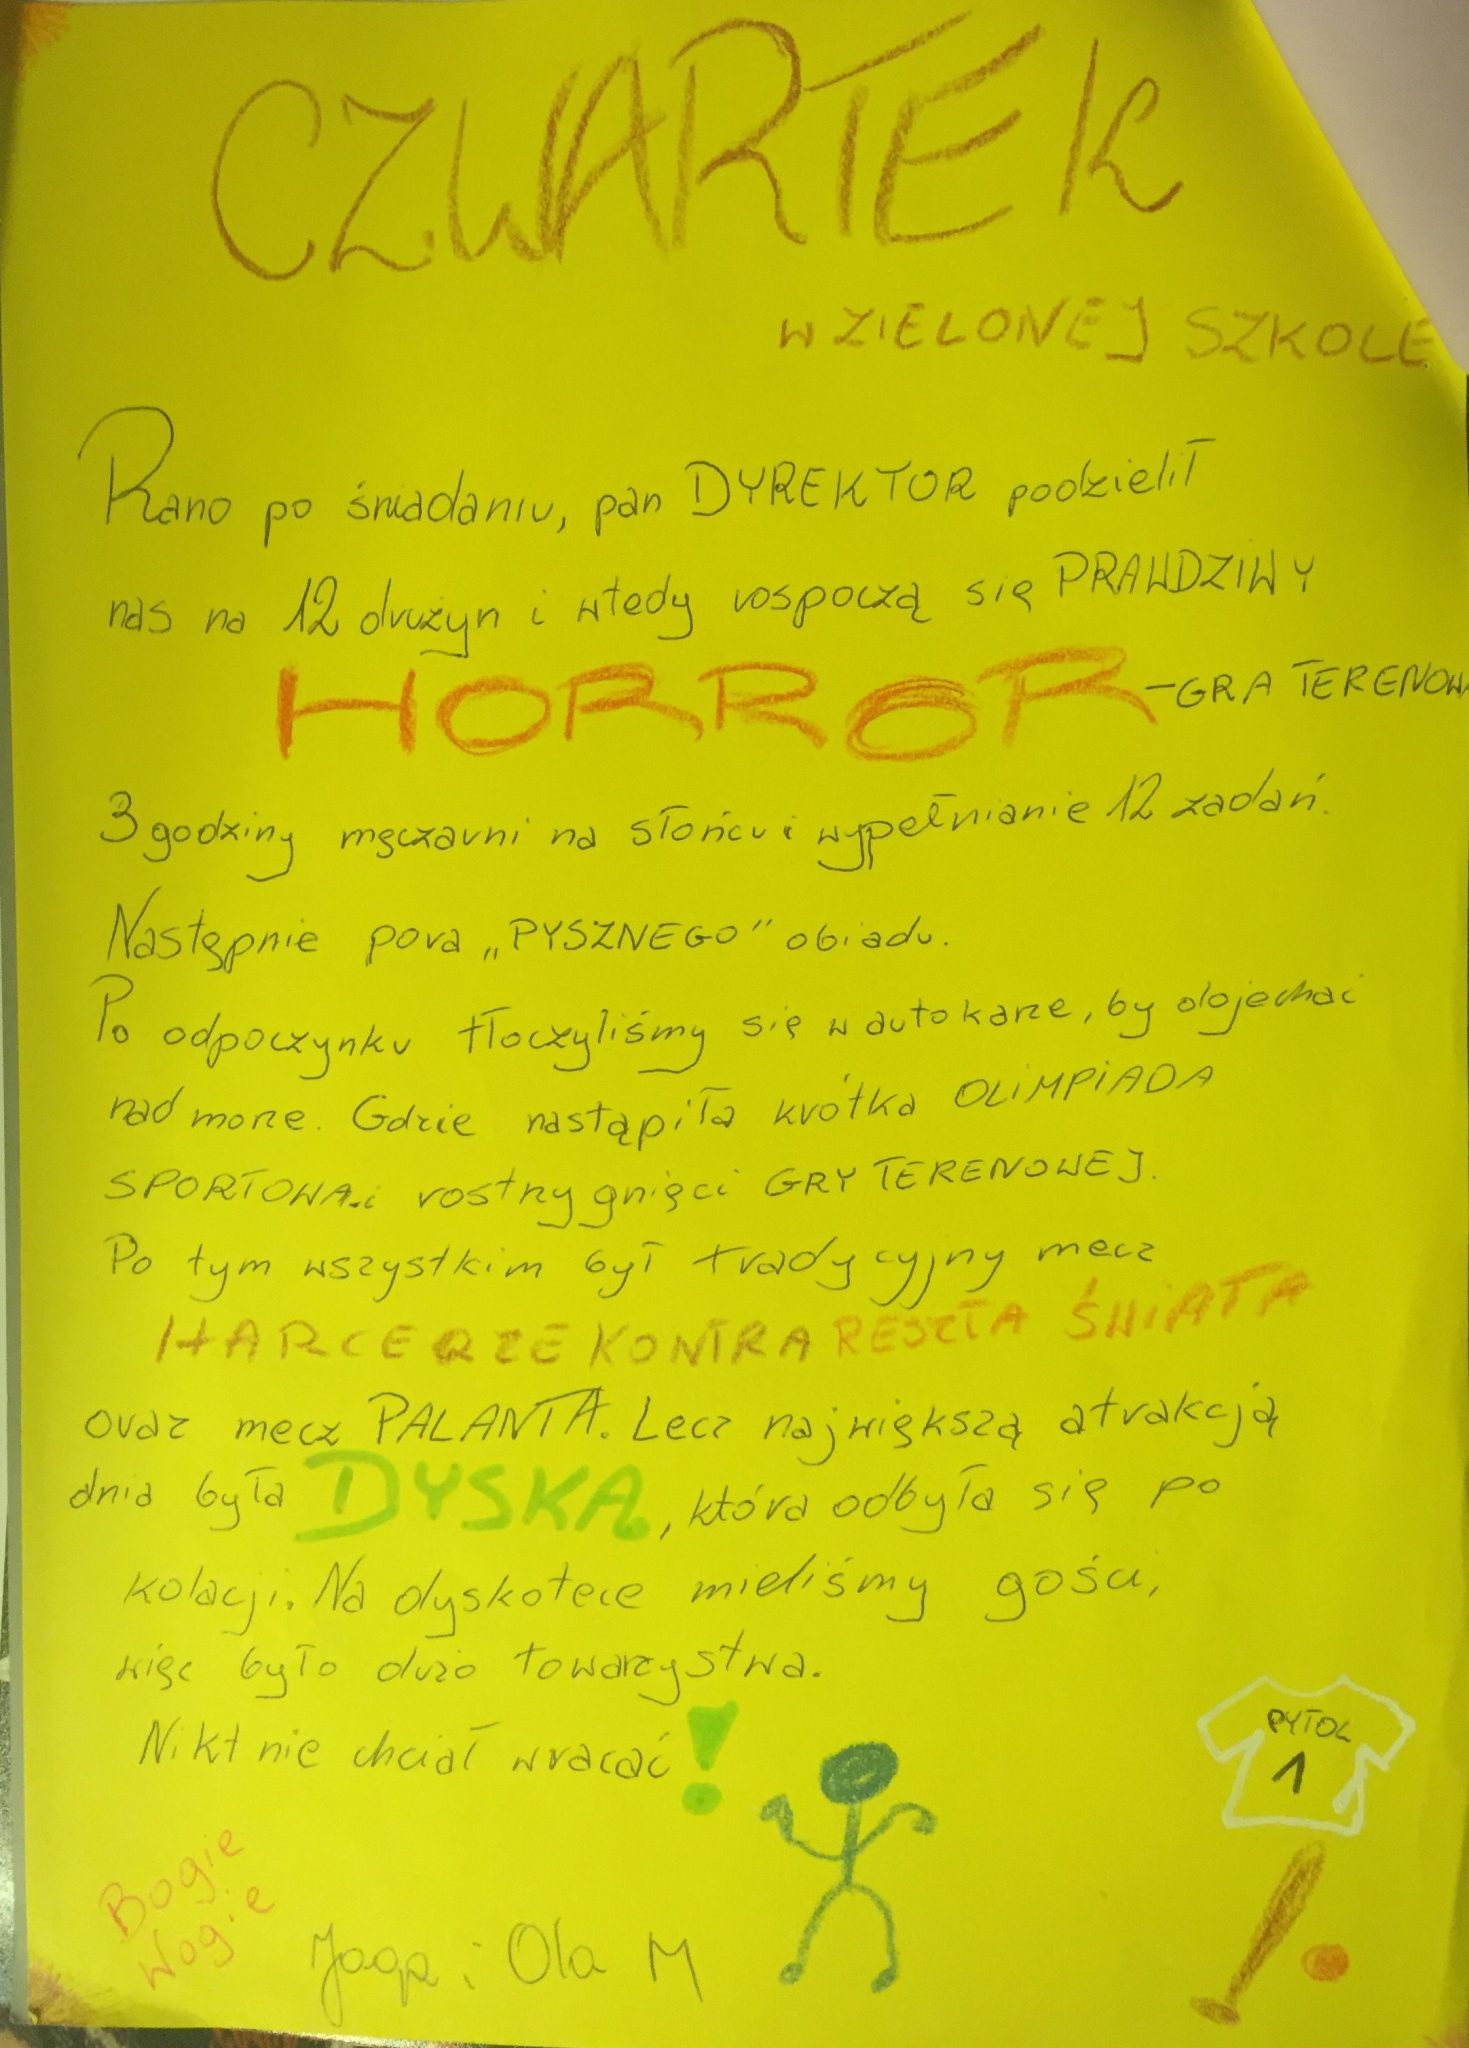 CZWARTEK
W ZIELONEJ SZKOLE
Rano po śniadaniu, pan DYREKTOR podzielił
nas na 12 drużyn i wtedy rospoczą się PRAWDZIWY
HORROR - GRA TERENOWA
3 godziny męczarni na słońcu i wypełnianie 12 zadań.
Następnie pora „PYSZNEGO" obiadu.
Po odpoczynku tłoczyliśmy się w autokarze, by dojechać
nad morze. Gdzie nastąpiła krótka OLIMPIADA
SPORTOWA i rostrzygnięci GRY TERENOWEJ.
Po tym wszystkim był tradycyjny mecz
HARCERZE KONTRA RESZTA ŚWIATA
oraz mecz PALANTA. Lecz największą atrakcją
dnia była DYSKA, która odbyła się po
kolacji. Na dyskotece mieliśmy gości,
więc było dużo towarzystwa.
Nikt nie chciał wracać!
PYTOL
1
Bogie
Wogie
Jaga i Ola M